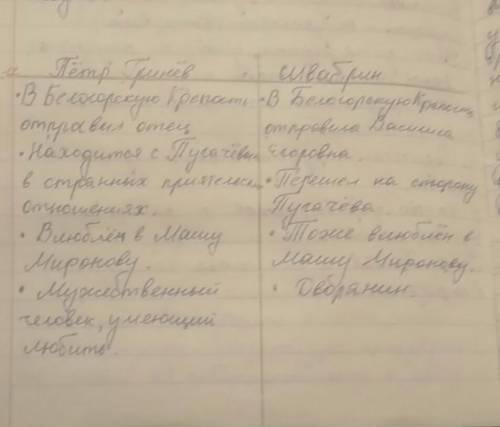 Пётр Гринёв
• В Белогорскую Крепость
отправил отец
• Находится с Пугачёвым
в странных приятельских
отношениях.
• Влюблён в Машу
Миронову.
• Мужественный
человек, умеющий
любить.
Швабрин
• В Белогорскую Крепость
отправила Василиса
Егоровна.
• Перешел на сторону
Пугачёва.
• Тоже влюблён в
Машу Миронову.
• Дворянин.